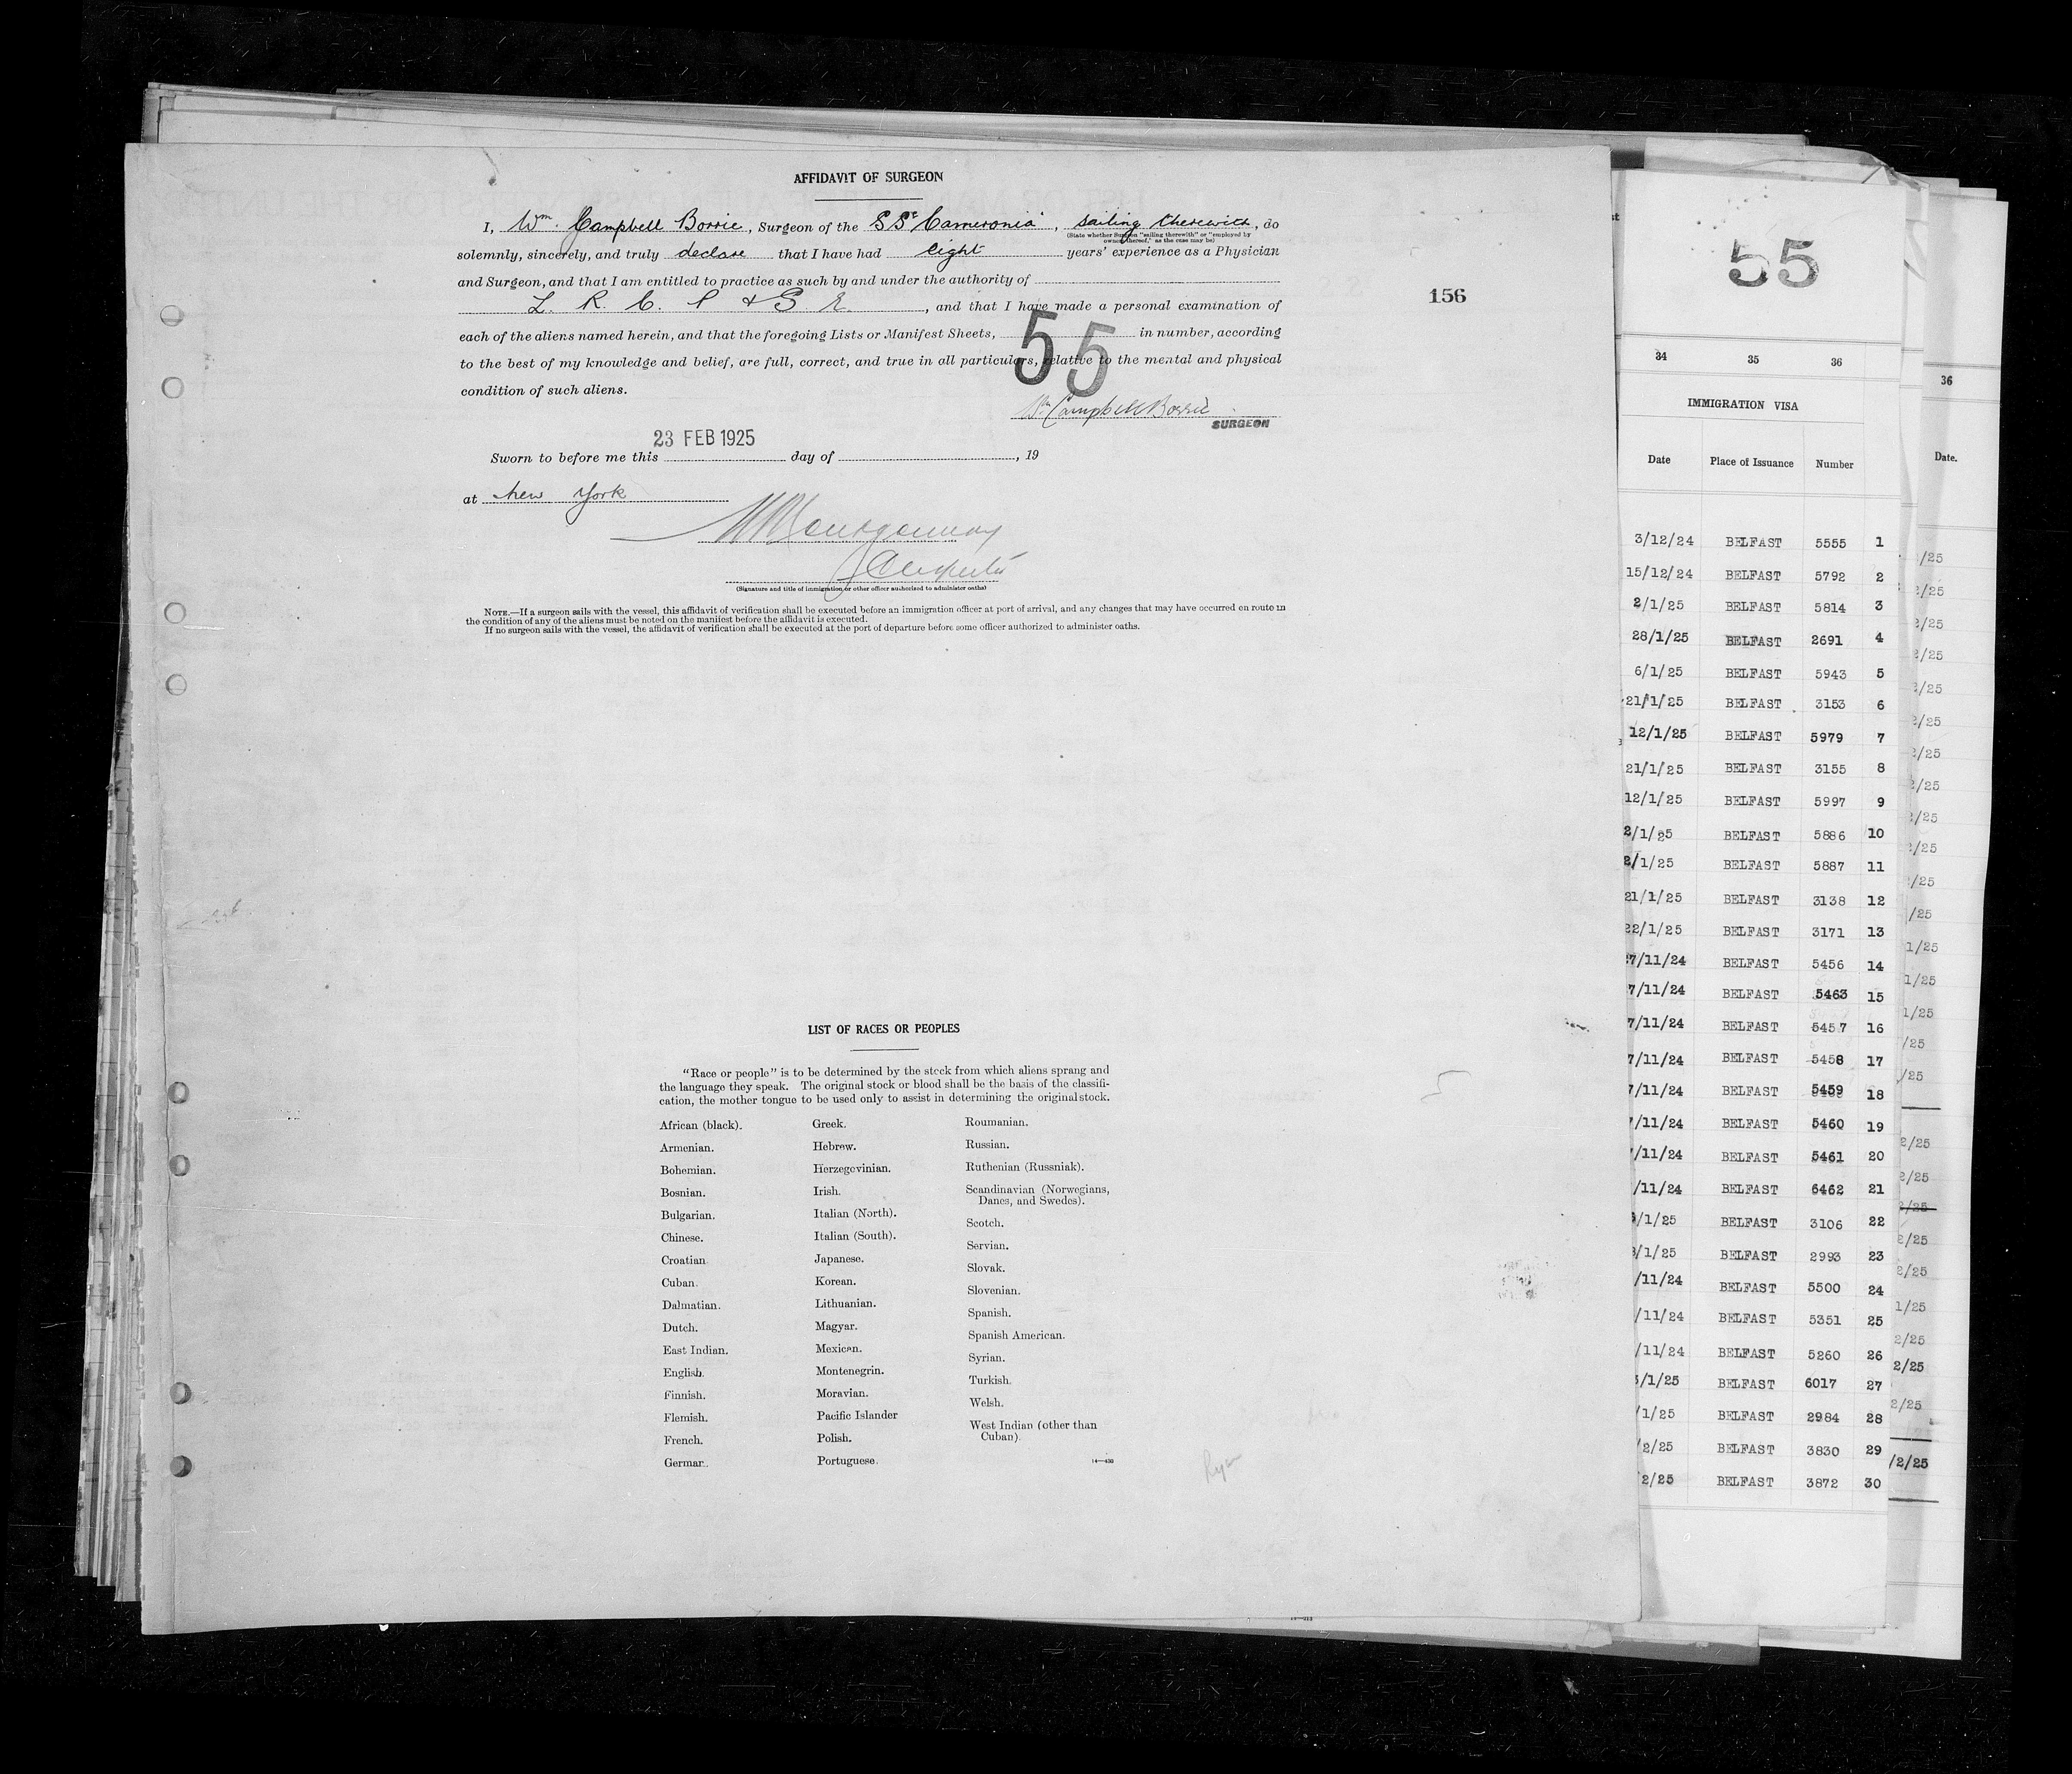 AFFIDAVIT OF SURGEON
I, Wm. Campbell Borrie, Surgeon of the SS. "Cameronia", sailing therewith, do
(State whether Surgeon "sailing therewith" or "employed by
owners thereof," as the case may be)
solemnly, sincerely, and truly declare that I have had eight years' experience as a Physician
and Surgeon, and that I am entitled to practice as such by and under the authority of
L. R. C. P & S E, and that I have made a personal examination of
156
each of the aliens named herein, and that the foregoing Lists or Manifest Sheets, in number, according
55
to the best of my knowledge and belief, are full, correct, and true in all particulars, relative to the mental and physical
condition of such aliens.
Wm Campbell Borrie
SURGEON
23 FEB 1925
Sworn to before me this day of , 19
at New York
(Signature and title of immigration or other officer authorized to administer oaths)
NOTE.—If a surgeon sails with the vessel, this affidavit of verification shall be executed before an immigration officer at port of arrival, and any changes that may have occurred en route in
the condition of any of the aliens must be noted on the manifest before the affidavit is executed.
If no surgeon sails with the vessel, the affidavit of verification shall be executed at the port of departure before some officer authorized to administer oaths.
LIST OF RACES OR PEOPLES
"Race or people" is to be determined by the stock from which aliens sprang and
the language they speak. The original stock or blood shall be the basis of the classifi-
cation, the mother tongue to be used only to assist in determining the original stock.
African (black).
Armenian.
Bohemian.
Bosnian.
Bulgarian.
Chinese.
Croatian
Cuban.
Dalmatian.
Dutch.
East Indian.
English.
Finnish.
Flemish.
French.
German.
Greek.
Hebrew.
Herzegovinian.
Irish.
Italian (North).
Italian (South).
Japanese.
Korean.
Lithuanian.
Magyar.
Mexican.
Montenegrin.
Moravian.
Pacific Islander
Polish.
Portuguese.
Roumanian.
Russian.
Ruthenian (Russniak).
Scandinavian (Norwegians,
Danes, and Swedes).
Scotch.
Servian.
Slovak.
Slovenian.
Spanish.
Spanish American.
Syrian.
Turkish.
Welsh.
West Indian (other than
Cuban).
14—430
Ryan
55
34 35 36
IMMIGRATION VISA
Date Place of Issuance Number
3/12/24 BELFAST 5555 1
15/12/24 BELFAST 5792 2
2/1/25 BELFAST 5814 3
28/1/25 BELFAST 2691 4
6/1/25 BELFAST 5943 5
21/1/25 BELFAST 3153 6
12/1/25 BELFAST 5979 7
21/1/25 BELFAST 3155 8
12/1/25 BELFAST 5997 9
2/1/25 BELFAST 5886 10
2/1/25 BELFAST 5887 11
21/1/25 BELFAST 3138 12
22/1/25 BELFAST 3171 13
27/11/24 BELFAST 5456 14
7/11/24 BELFAST 5463 15
7/11/24 BELFAST 5457 16
7/11/24 BELFAST 5458 17
7/11/24 BELFAST 5459 18
/11/24 BELFAST 5460 19
/11/24 BELFAST 5461 20
/11/24 BELFAST 5462 21
/1/25 BELFAST 3106 22
/1/25 BELFAST 2993 23
/11/24 BELFAST 5500 24
/11/24 BELFAST 5351 25
/11/24 BELFAST 5260 26
/1/25 BELFAST 6017 27
/1/25 BELFAST 2984 28
/2/25 BELFAST 3830 29
2/25 BELFAST 3872 30
36
Date.
/25
2/25
2/25
2/25
2/25
2/25
2/25
2/25
2/25
2/25
/25
/25
1/25
1/25
1/25
/25
/25
2/25
2/25
2/25
2/25
2/25
1/25
2/25
2/25
2/25
/2/25